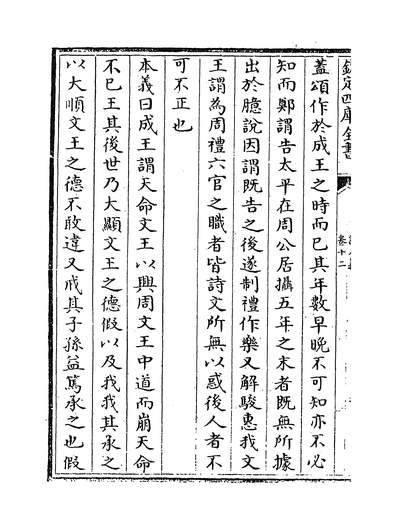 欽定四庫全書
卷十二
蓋頌作於成王之時而已其年數早晚不可知亦不必
知而鄭謂告太平在周公居攝五年之末者既無所據
出於臆說因謂既告之後遂制禮作樂又解駿惠我文
王謂為周禮六官之職者皆詩文所無以惑後人者不
可不正也
本義曰成王謂天命文王以興周文王中道而崩天命
不已王其後世乃大顯文王之德假以及我我其承之
以大順文王之德不敢違又戒其子孫益篤承之也假